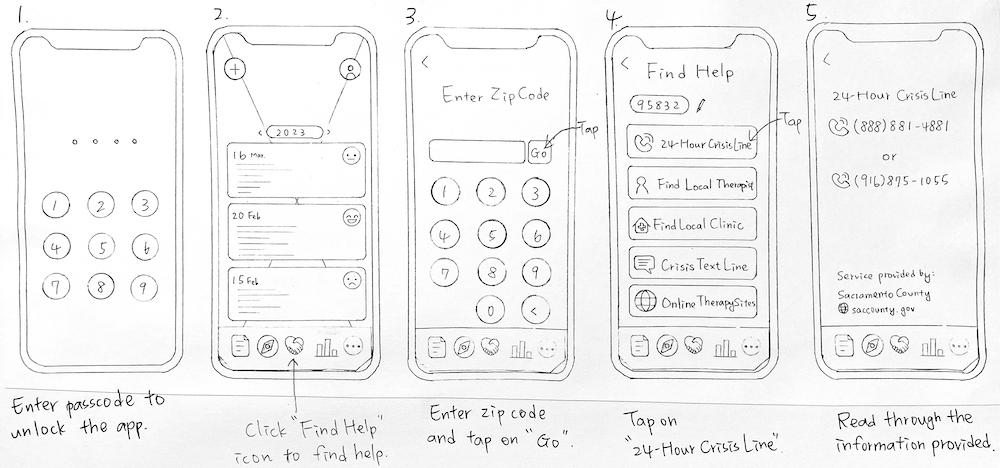 1.
1 2 3
4 5 6
7 8 9
Enter passcode to
unlock the app.
2.
+
< 2023 >
16 Mar.
20 Feb
15 Feb
Click "Find Help"
icon to find help.
3.
<
Enter Zip Code
Go
Tap
1 2 3
4 5 6
7 8 9
0 <
Enter zip code
and tap on "Go".
4.
<
Find Help
95832
24-Hour Crisis Line
Tap
Find Local Therapist
Find Local Clinic
Crisis Text Line
Online Therapy Sites
Tap on
"24-Hour Crisis Line".
5.
<
24-Hour Crisis Line
(888) 881-4881
or
(916) 875-1055
Service provided by:
Sacramento County
saccounty.gov
Read through the
information provided.